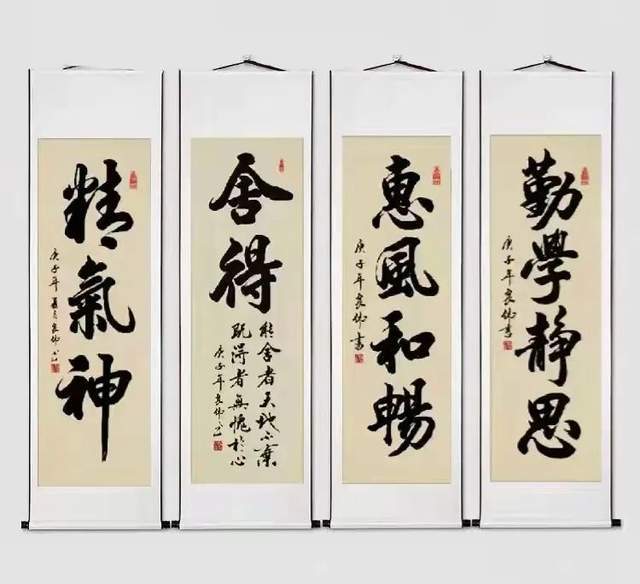 精氣神
庚子年夏月良
舍得
能舍者天地不棄
既得者無愧於心
庚子年良
惠風和暢
庚子年良書
勤學靜思
庚子年良書